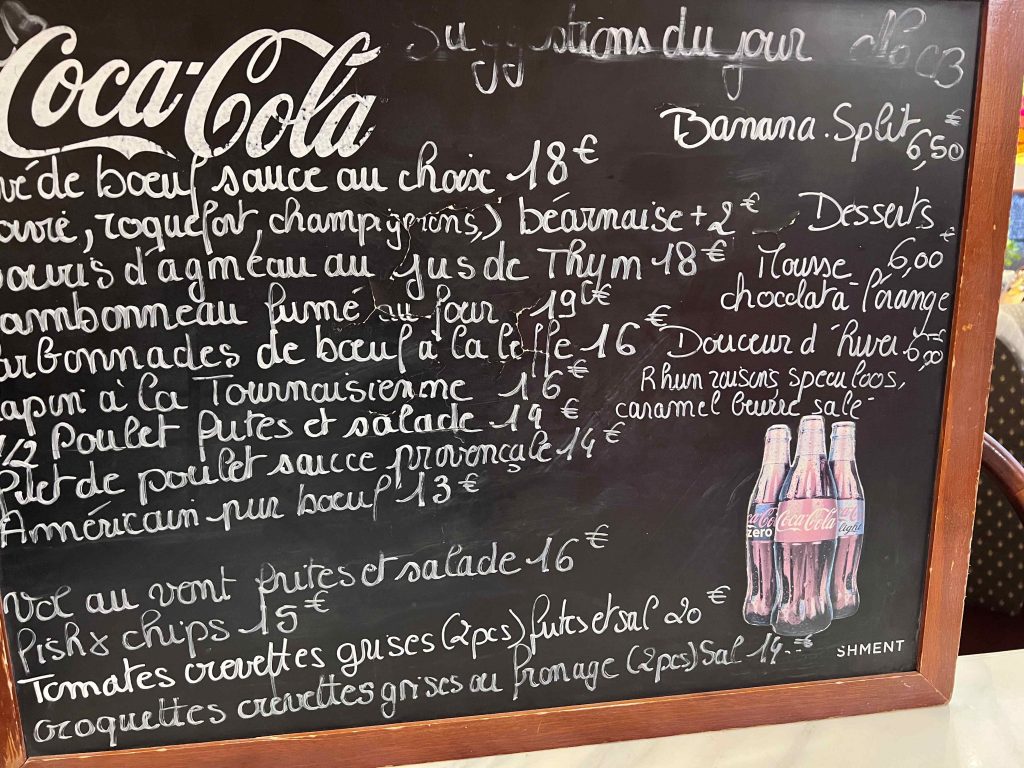 Coca-Cola
Suggestions du jour
Banana Split 6,50 €
vé de bœuf sauce au choix 18 €
oivre, roquefort, champignons,) béarnaise + 2 €
Desserts
ouris d'agneau au jus de Thym 18 €
Mousse 6,00 €
chocolat à l'orange
ambonneau fumé au four 19 €
arbonnades de bœuf à la leffe 16 €
Douceur d'hiver 6,00 €
Rhum raisins speculoos,
caramel beurre salé
apin à la Tournaisienne 16 €
1/2 Poulet frites et salade 14 €
filet de poulet sauce provençale 14 €
Américain pur bœuf 13 €
Vol au vent frites et salade 16 €
Fish & chips 15 €
Tomates crevettes grises (2pcs) frites et sal 20 €
croquettes crevettes grises ou fromage (2pcs) Sal 14.- €
zero Coca-Cola light
SHMENT